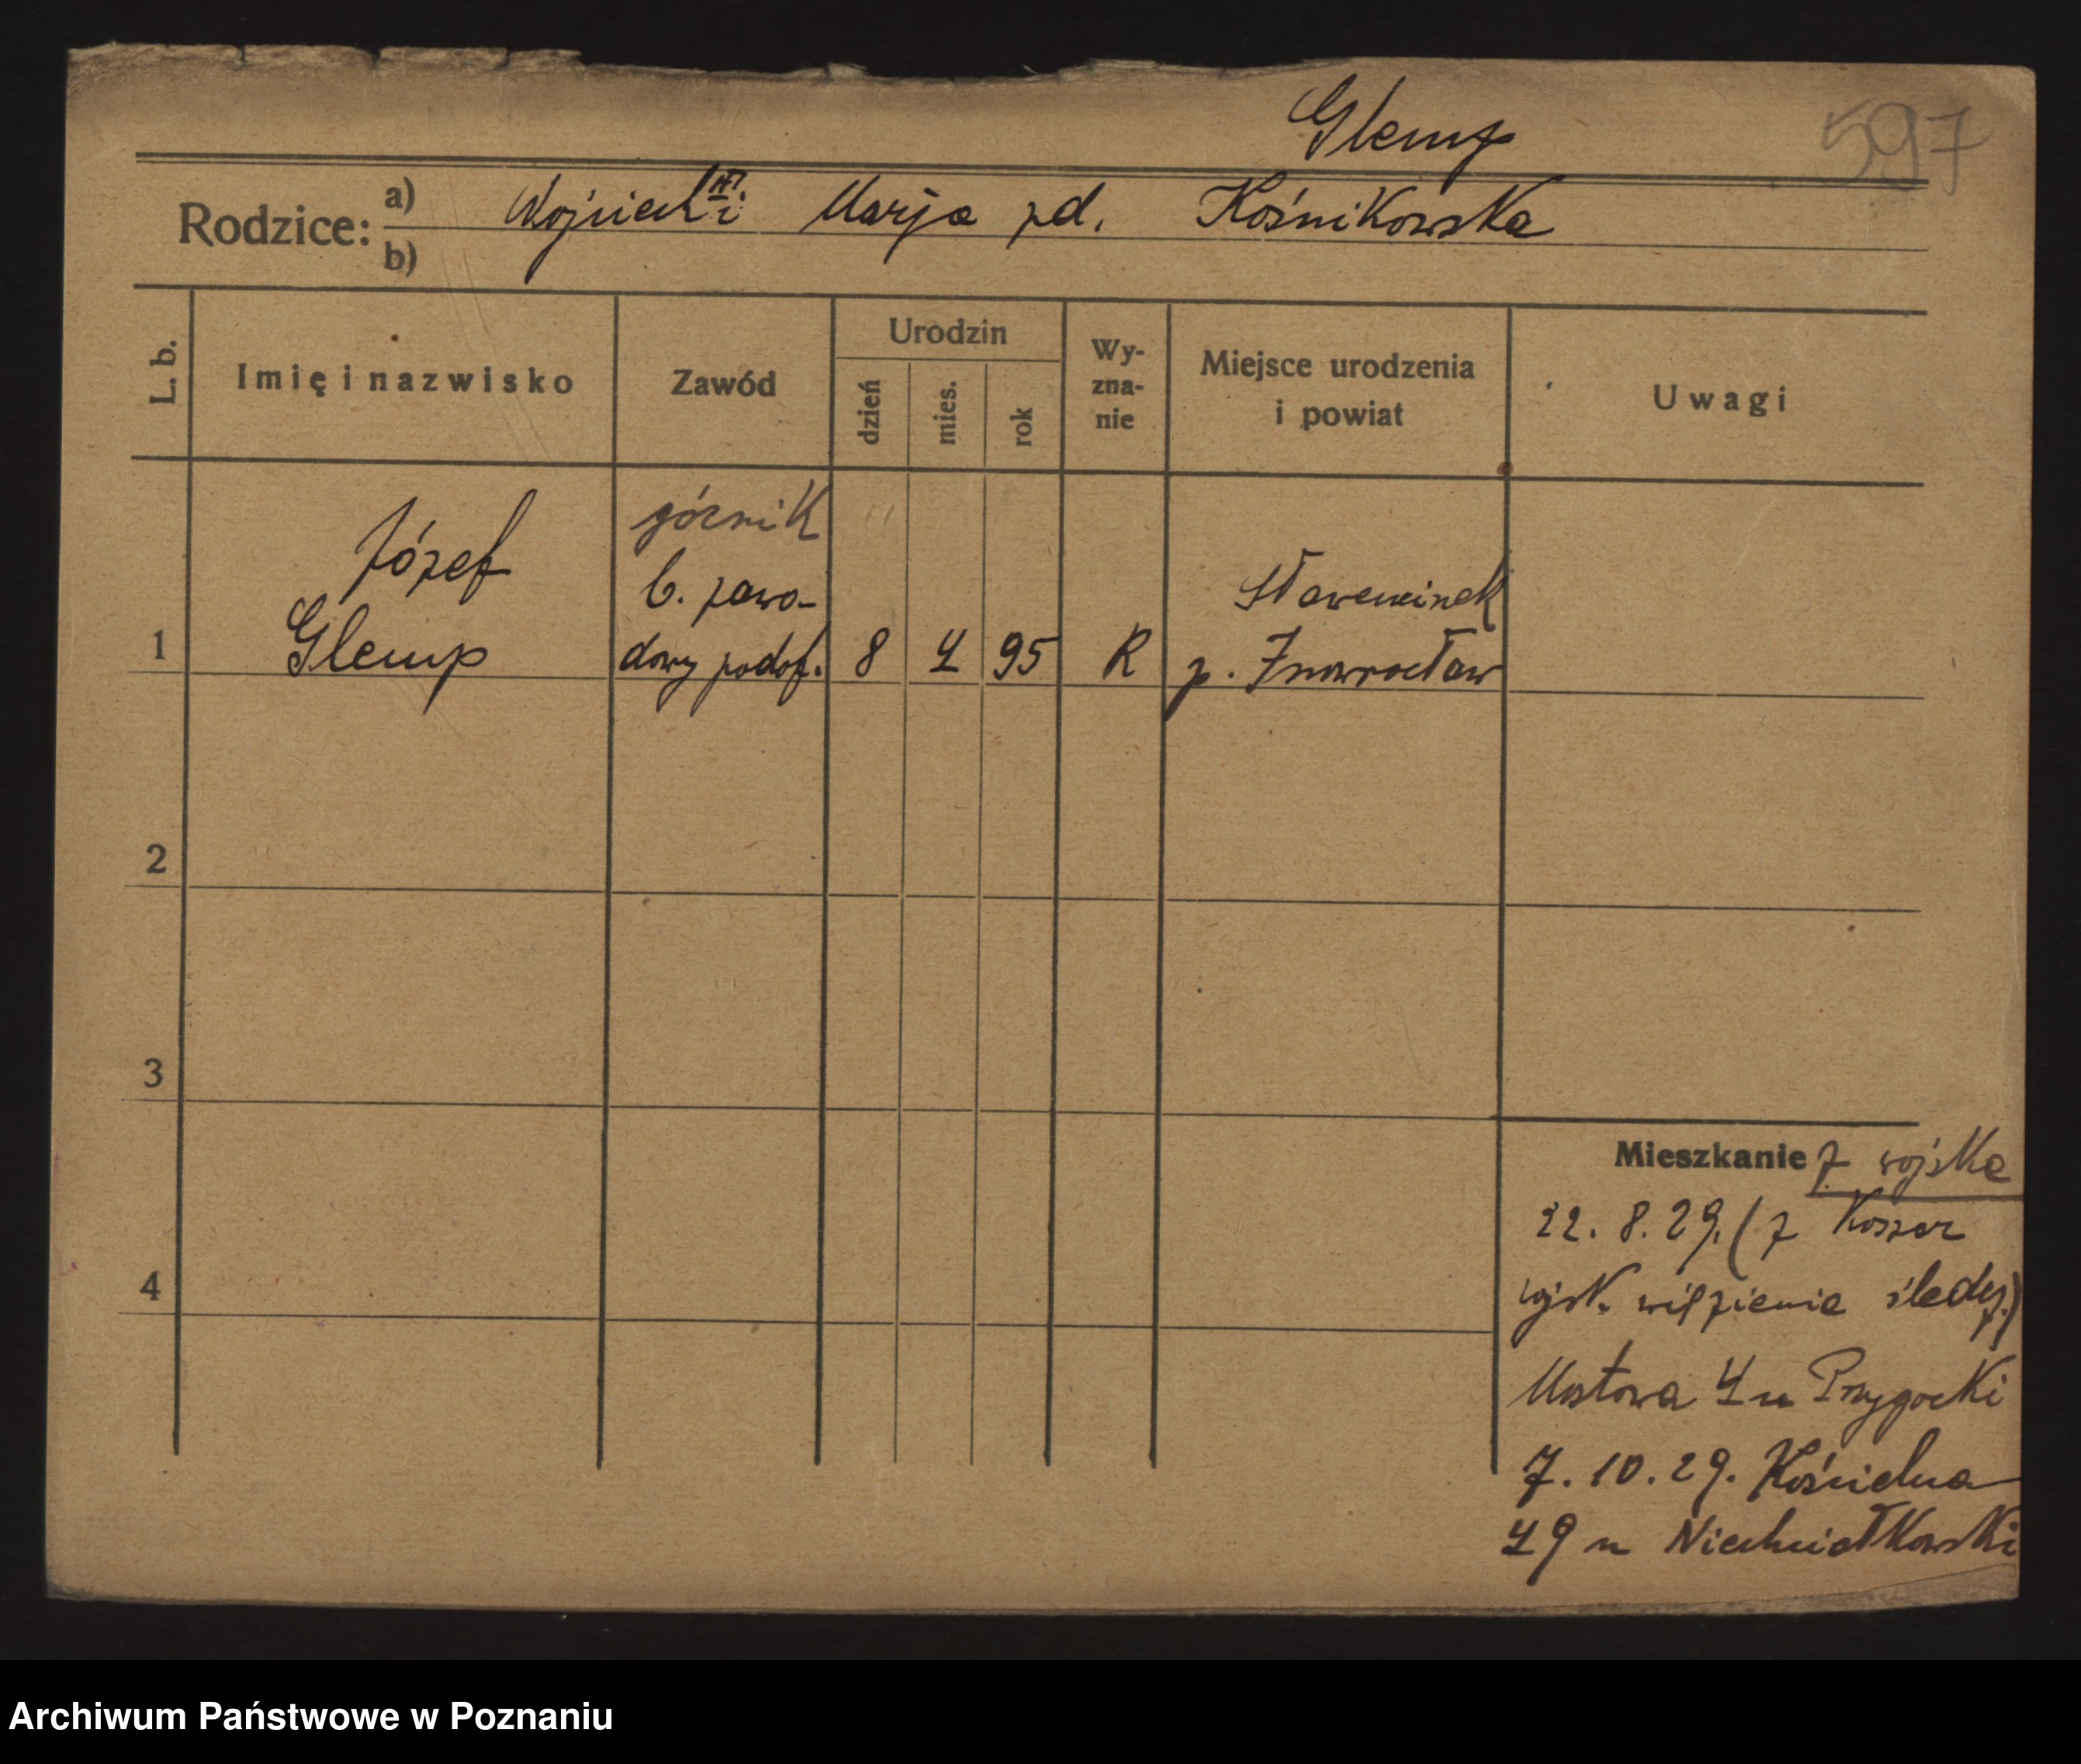 Glemp
597
Rodzice: a) Wojciech i Marja zd. Kośnikowska
b)
L. b.
Imię i nazwisko
Zawód
Urodzin
dzień
mies.
rok
Wy-
zna-
nie
Miejsce urodzenia
i powiat
Uwagi
górnik
Józef
b. zawo-
Sławęcinek
1
Glemp
dowy podof.
8
4
95
R
p. Inowrocław
2
3
4
Mieszkanie z wojska
22. 8. 29. (z Koszar
wojsk. więzienie śledcz.)
Mostowa 4 u Przygocki
7. 10. 29. Kościelna
49 u Niechciałkowski
Archiwum Państwowe w Poznaniu